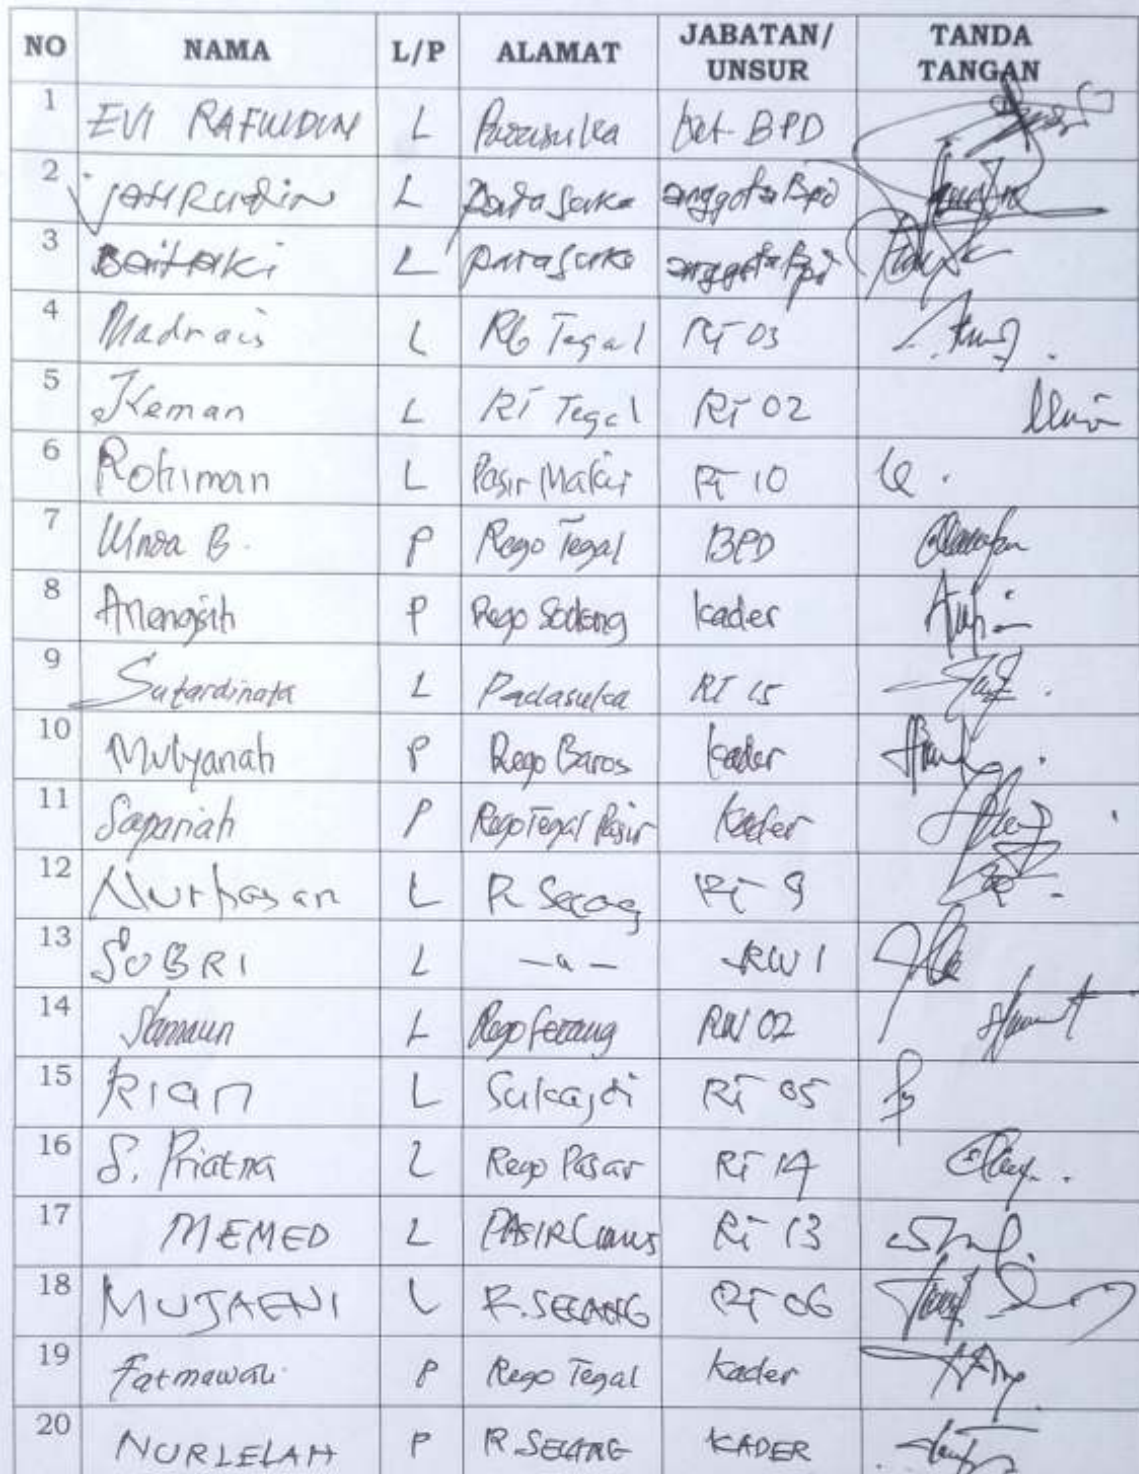 NO NAMA L/P ALAMAT JABATAN/ UNSUR TANDA TANGAN
1 EVI RAFIUDIN L Padasuka ket. BPD
2 JAHRUDIN L Padasuka anggota Bpd
3 Baitaki L Padasuka anggota Bpd
4 Madrais L RG Tegal RT 03
5 Keman L RT Tegal RT 02
6 Rohiman L Pasir RT 10
7 B. P Rego Tegal BPD
8 P Rego Sodong kader
9 Sutardinata L Padasuka RT 15
10 Mulyanah P Rego Baros kader
11 Sapariah P Rego Tegal Pasir kader
12 Nurhasan L R Secang RT 9
13 SOBRI L RW 1
14 L Rego Secang RW 02
15 RIAN L Sukajadi RT 05
16 S. Priatna L Rego Pasar RT 14
17 MEMED L PASIR RT 13
18 MUJAENI L R. SECANG RT 06
19 Fatmawati P Rego Tegal Kader
20 NURLELAH P R. SECANG KADER